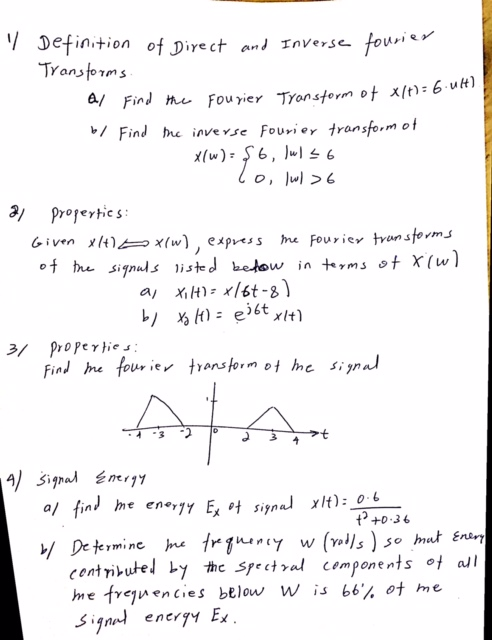 1/ Definition of Direct and Inverse fourier
Transforms.
a/ Find the Fourier Transform of x(t) = 6·u(t)
b/ Find the inverse Fourier transform of
x(w) = { 6, |w| ≤ 6
0, |w| > 6
2/ properties:
Given x(t) ⟺ x(w), express the Fourier transforms
of the signals listed below in terms of X(w)
a) x₁(t) = x(6t-8)
b) x₂(t) = e^{j6t} x(t)
3/ properties:
Find the fourier transform of the signal
1
-4 -3 -2 0 2 3 4 t
4) Signal Energy
a/ find the energy Eₓ of signal x(t) = 0.6 / (t²+0.36)
b/ Determine the frequency W (rad/s) so that Energy
contributed by the spectral components of all
the frequencies below W is 66% of the
signal energy Eₓ.